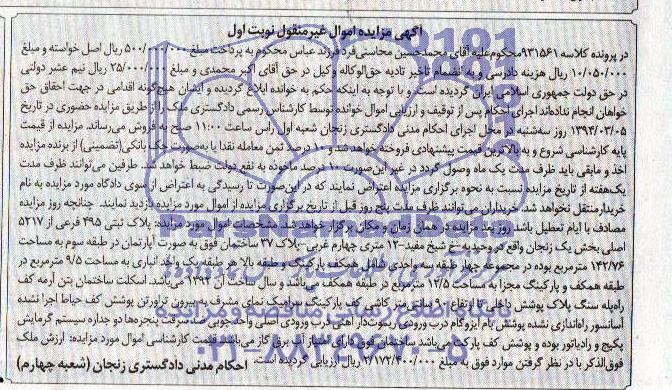 آگهی مزایده اموال غیرمنقول نوبت اول
در پرونده کلاسه ۹۳۱۵۶۱ محکوم‌علیه آقای محمدحسین محاسنی‌فرد فرزند عباس محکوم به پرداخت مبلغ ۵۰۰/۰۰۰/۰۰۰ ریال اصل خواسته و مبلغ
۱۰/۰۵۰/۰۰۰ ریال هزینه دادرسی و به انضمام تاخیر تادیه حق‌الوکاله وکیل در حق آقای اکبر محمدی و مبلغ ۲۵/۰۰۰/۰۰۰ ریال نیم عشر دولتی
در حق دولت جمهوری اسلامی ایران گردیده است. و با توجه به اینکه حکم به خوانده ابلاغ گردیده و ایشان هیچ‌گونه اقدامی در جهت احقاق حق
خواهان انجام نداده‌اند اجرای احکام پس از توقیف و ارزیابی اموال خوانده توسط کارشناس رسمی دادگستری ملک را از طریق مزایده حضوری در تاریخ
۱۳۹۴/۰۳/۰۵ روز سه‌شنبه در محل اجرای احکام مدنی دادگستری زنجان شعبه اول راس ساعت ۱۱:۰۰ صبح به فروش می‌رساند. مزایده از قیمت
پایه کارشناسی شروع و به بالاترین قیمت پیشنهادی فروخته خواهد شد و ۱۰ درصد ثمن معامله نقدا یا به‌صورت چک بانکی (تضمینی) از برنده مزایده
اخذ و مابقی باید ظرف مدت یک ماه وصول گردد در غیر این‌صورت ۱۰ درصد ماخوذه به نفع دولت ضبط خواهد شد. طرفین می‌توانند ظرف مدت
یک‌هفته از تاریخ مزایده نسبت به نحوه برگزاری مزایده اعتراض نمایند که در این‌صورت تا رسیدگی به اعتراض از سوی دادگاه مورد مزایده به نام
خریدار منتقل نخواهد شد. خریداران می‌توانند ظرف مدت پنج روز قبل از تاریخ برگزاری مزایده از اموال مورد مزایده بازدید نمایند. چنانچه روز مزایده
مصادف با ایام تعطیل باشد روز بعد مزایده در همان زمان و مکان برگزار خواهد شد. مشخصات اموال مورد مزایده: پلاک ثبتی ۴۹۵ فرعی از ۵۲۱۷
اصلی بخش یک زنجان واقع در وحیدیه-خ شیخ مفید-۱۲ متری چهارم غربی-پلاک ۳۷ ساختمان فوق به صورت آپارتمان در طبقه سوم به مساحت
۱۴۲/۷۶ مترمربع بوده در مجموعه چهار طبقه سه واحدی شامل همکف پارکینگ و طبقه بالا هر طبقه یک واحد انباری به مساحت ۹/۵ مترمربع در
طبقه همکف و پارکینگ مجزا به مساحت ۱۲/۵ مترمربع در طبقه همکف می‌باشد و سال ساخت آن ۱۳۹۲ می‌باشد. اسکلت ساختمان بتن آرمه کف
راه‌پله سنگ پلاک پوشش داخلی تا ارتفاع ۹۰ سانتی‌متر کاشی کف پارکینگ سرامیک نمای مشرف به بیرون تراورتن پوشش کف حیاط اجرا نشده
آسانسور راه‌اندازی نشده پوشش بام ایزوگام درب ورودی ریموت‌دار آهنی درب ورودی اصلی واحد چوبی ضد سرقت پنجره‌ها دو جداره سیستم گرمایش
پکیج و رادیاتور بوده و پوشش کف پارکت می‌باشد ساختمان فوق دارای امتیاز آب برق گاز می‌باشد. قیمت کارشناسی اموال مورد مزایده: ارزش ملک
فوق‌الذکر با در نظر گرفتن موارد فوق به مبلغ ۲/۱۷۲/۴۰۰/۰۰۰ ریال ارزیابی گردیده است.
احکام مدنی دادگستری زنجان (شعبه چهارم)